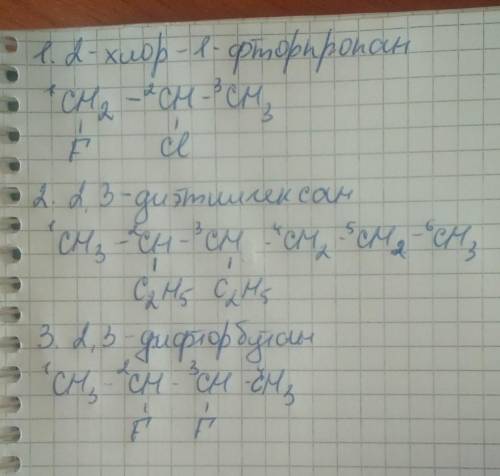 1. 2-хлор-1-фторпропан
¹CH₂ - ²CH - ³CH₃
F Cl
2. 2,3-диэтилгексан
¹CH₃ - ²CH - ³CH - ⁴CH₂ - ⁵CH₂ - ⁶CH₃
C₂H₅ C₂H₅
3. 2,3-дифторбутан
¹CH₃ - ²CH - ³CH - ⁴CH₃
F F